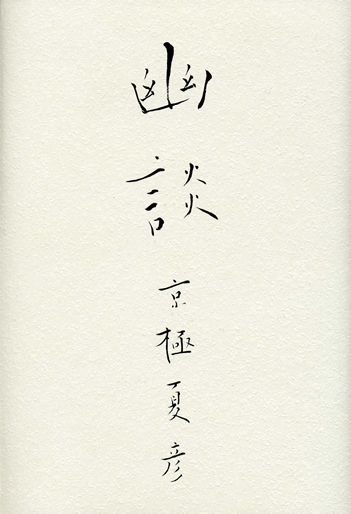 幽談
京極夏彦